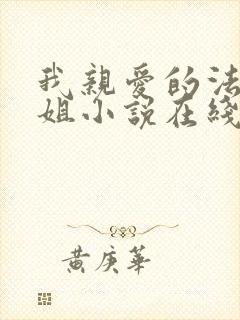 我親愛的法
姐小説在綫
黃庚華